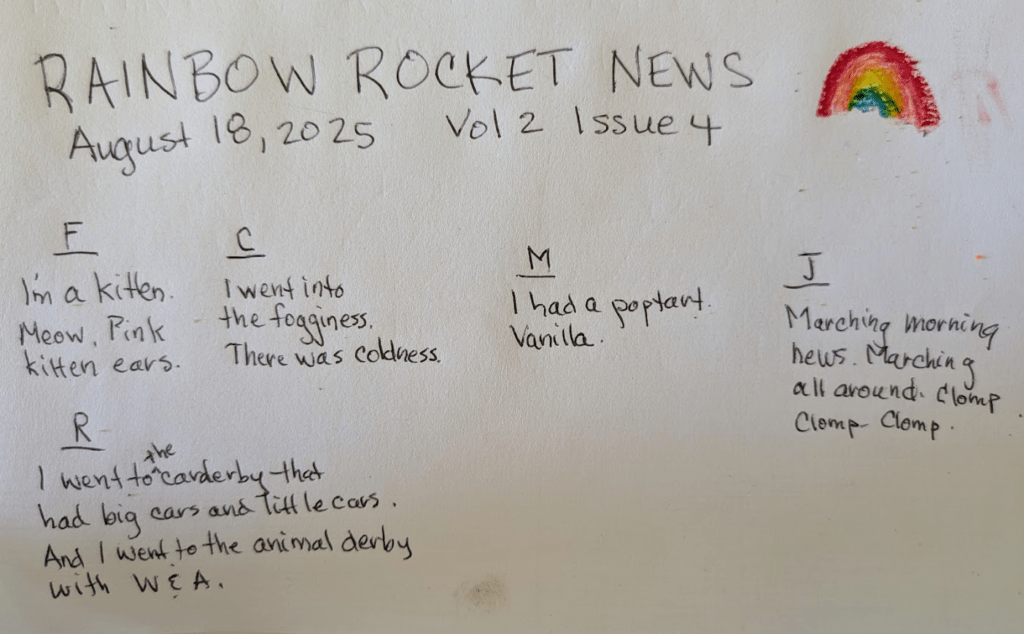 RAINBOW ROCKET NEWS
August 18, 2025 Vol 2 Issue 4
F
I'm a kitten.
Meow. Pink
kitten ears.
C
I went into
the fogginess.
There was coldness.
M
I had a poptart.
Vanilla.
J
Marching morning
news. Marching
all around. Clomp
Clomp- Clomp.
R
I went to the carderby that
had big cars and little cars.
And I went to the animal derby
with W & A.